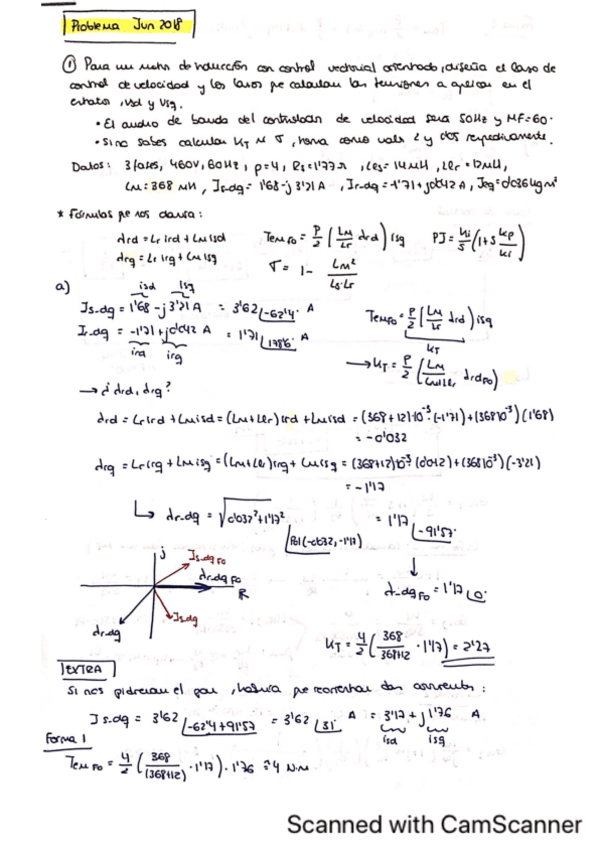 Problema Jun 2018
① Para un motor de inducción con control vectorial orientado, diseña el lazo de
control de velocidad y los lazos que calculan las tensiones a aplicar en el
estator, Vsd y Vsq.
• El ancho de banda del controlador de velocidad será 50Hz y MF=60º
• Si no sabes calcular KT y σ, toma como valor 2 y dos respectivamente.
Datos: 3 fases, 460V, 60Hz, p=4, Rs=1'77Ω, Les=14mH, Ler=12mH,
Lm=368 mH, Is-dq=1'68-j3'21A, Ir-dq=-1'71+j0'042A, Jeq=0'036kgm²
* Fórmulas que nos daban:
λrd = Lr ird + Lm isd
λrq = Lr irq + Lm isq
Tem FO = P/2 (Lm/Lr λrd) isq
PI = Ki/s (1+s Kp/Ki)
σ = 1 - Lm²/Ls·Lr
a)
isd isq
Is-dq = 1'68 - j 3'21 A = 3'62 ∠-62'4º A
Ir-dq = -1'71 + j0'042 A = 1'71 ∠178'6º A
ird irq
Tem FO = P/2 (Lm/Lr λrd) isq
KT
→ KT = P/2 (Lm/Lm+Ler λrd FO)
→ ¿λrd, λrq?
λrd = Lr ird + Lm isd = (Lm+Ler) ird + Lm isd = (368+12)·10⁻³·(-1'71)+(368·10⁻³)(1'68)
= -0'032
λrq = Lr irq + Lm isq = (Lm+Ler) irq + Lm isq = (368+12)10⁻³·(0'042)+(368·10⁻³)(-3'21)
= -1'17
↳ λr-dq = √0'032²+1'17² ∠Pol(-0'032,-1'17) = 1'17 ∠-91'57º
↓
λ-dq FO = 1'17 ∠0º
j
Is-dq FO
λr-dq FO
R
Is-dq
λr-dq
KT = 4/2 (368/368+12 · 1'17) = 2'27
EXTRA
Si nos pidieran el par, habría que reorientar las corrientes:
Is-dq = 3'62 ∠-62'4+91'57 = 3'62 ∠31º A = 3'17 + j1'76 A
isd isq
Forma 1
Tem FO = 4/2 (368/(368+12) · 1'17) · 1'76 = 4 N·m
Scanned with CamScanner